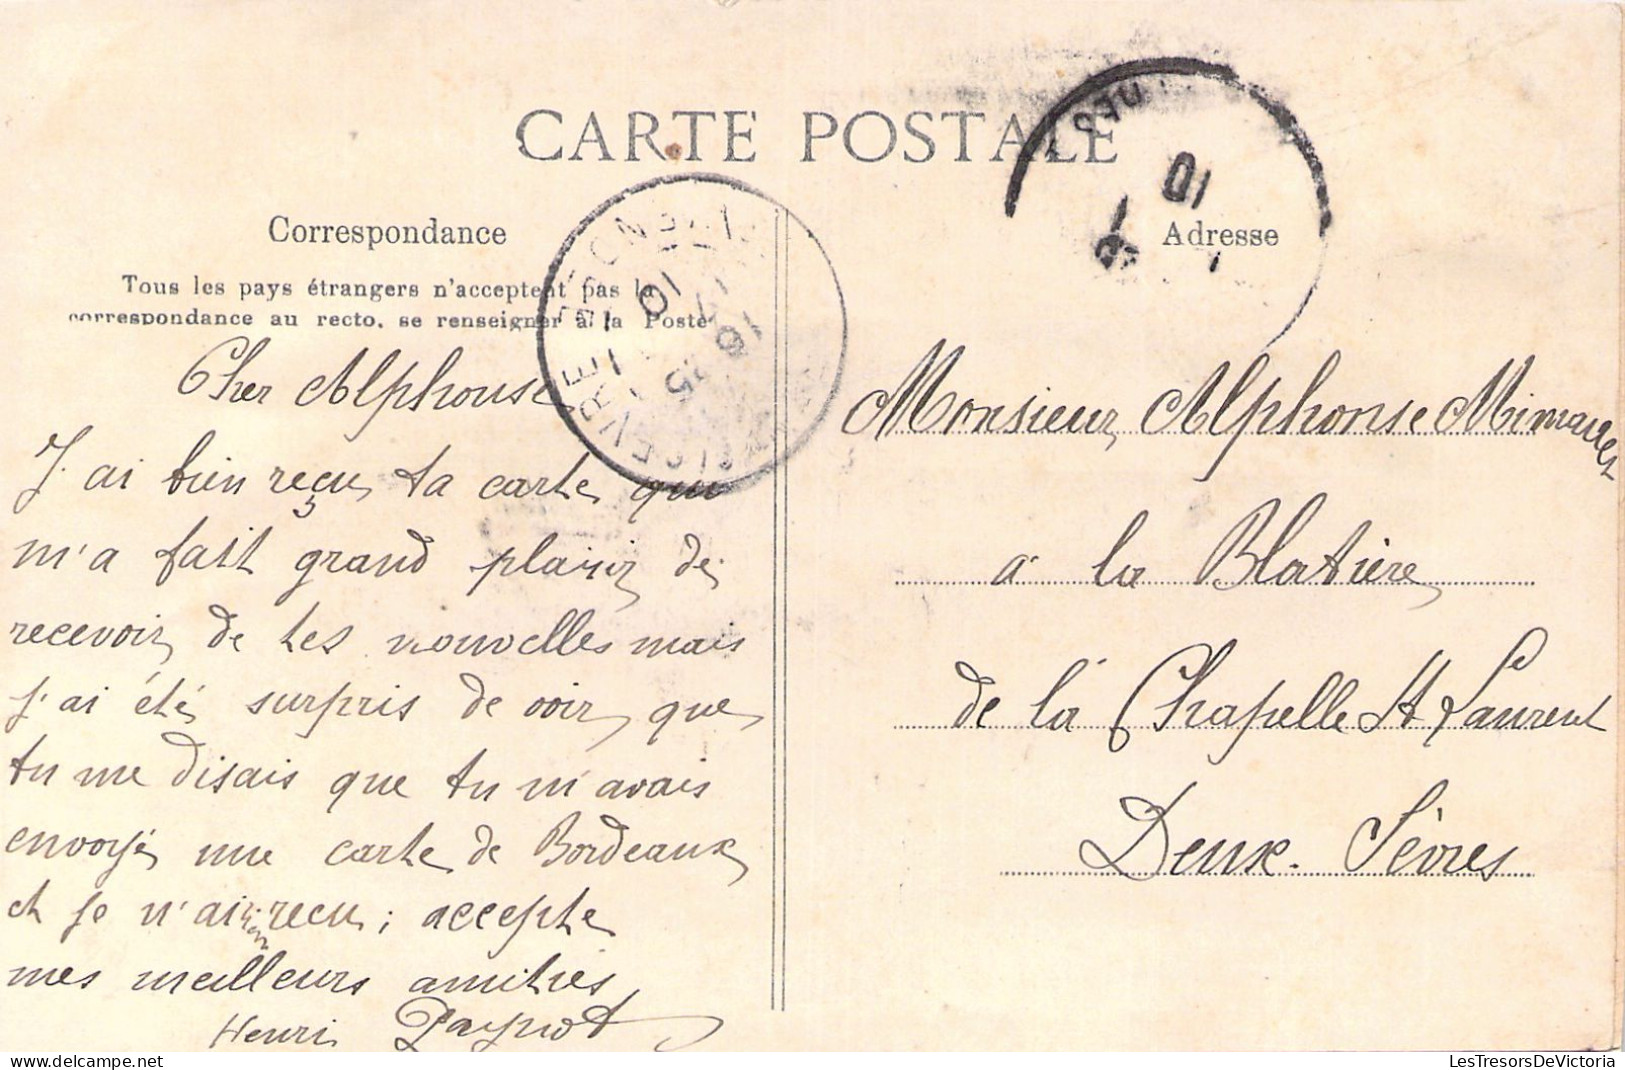 CARTE POSTALE
Correspondance
Tous les pays étrangers n'acceptent pas la
correspondance au recto. se renseigner à la Poste
Cher Alphonse
J'ai bien reçu ta carte qui
m'a fait grand plaisir de
recevoir de tes nouvelles mais
j'ai été surpris de voir que
tu me disais que tu m'avais
envoyé une carte de Bordeaux
et je n'ai reçu; accepte
mes meilleurs amitiés
Henri
SEVRE
10
25
16
DES
10
Adresse
Monsieur Alphonse
a la Blatière
de la Chapelle St Laurent
Deux-Sèvres
LesTresorsDeVictoria
www.delcampe.net